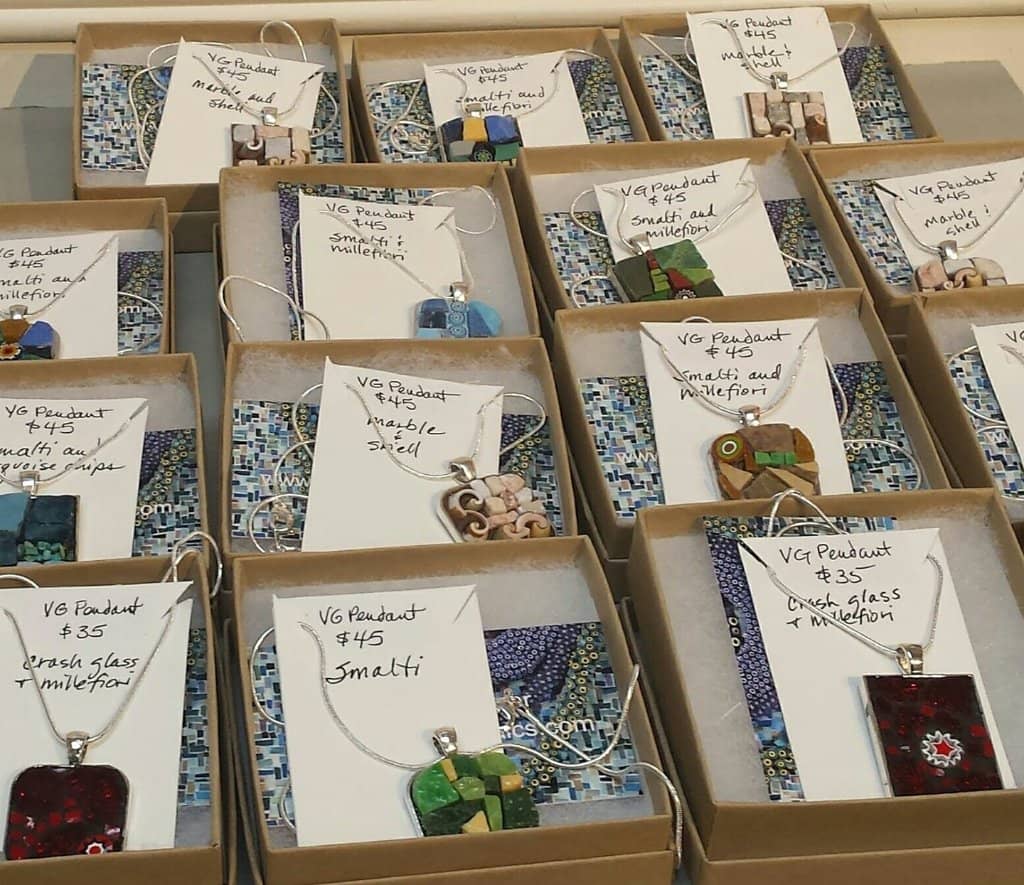 VG Pendant
$45
marble and
shell
VG Pendant
$45
smalti and
millefiori
VG Pendant
$45
marble &
shell
VG Pendant
$45
Smalti &
millefiori
VG Pendant
$45
Smalti and
millefiori
VG Pendant
$45
marble &
shell
VG Pendant
$45
millefiori
VG Pendant
$45
marble
&
shell
www
VG Pendant
$45
Smalti and
millefiori
www
VG
VG Pendant
$45
.com
VG Pendant
$35
Crash glass
+ millefiori
VG Pendant
$45
Smalti
cs.com
VG Pendant
$35
Crash glass
+ millefiori